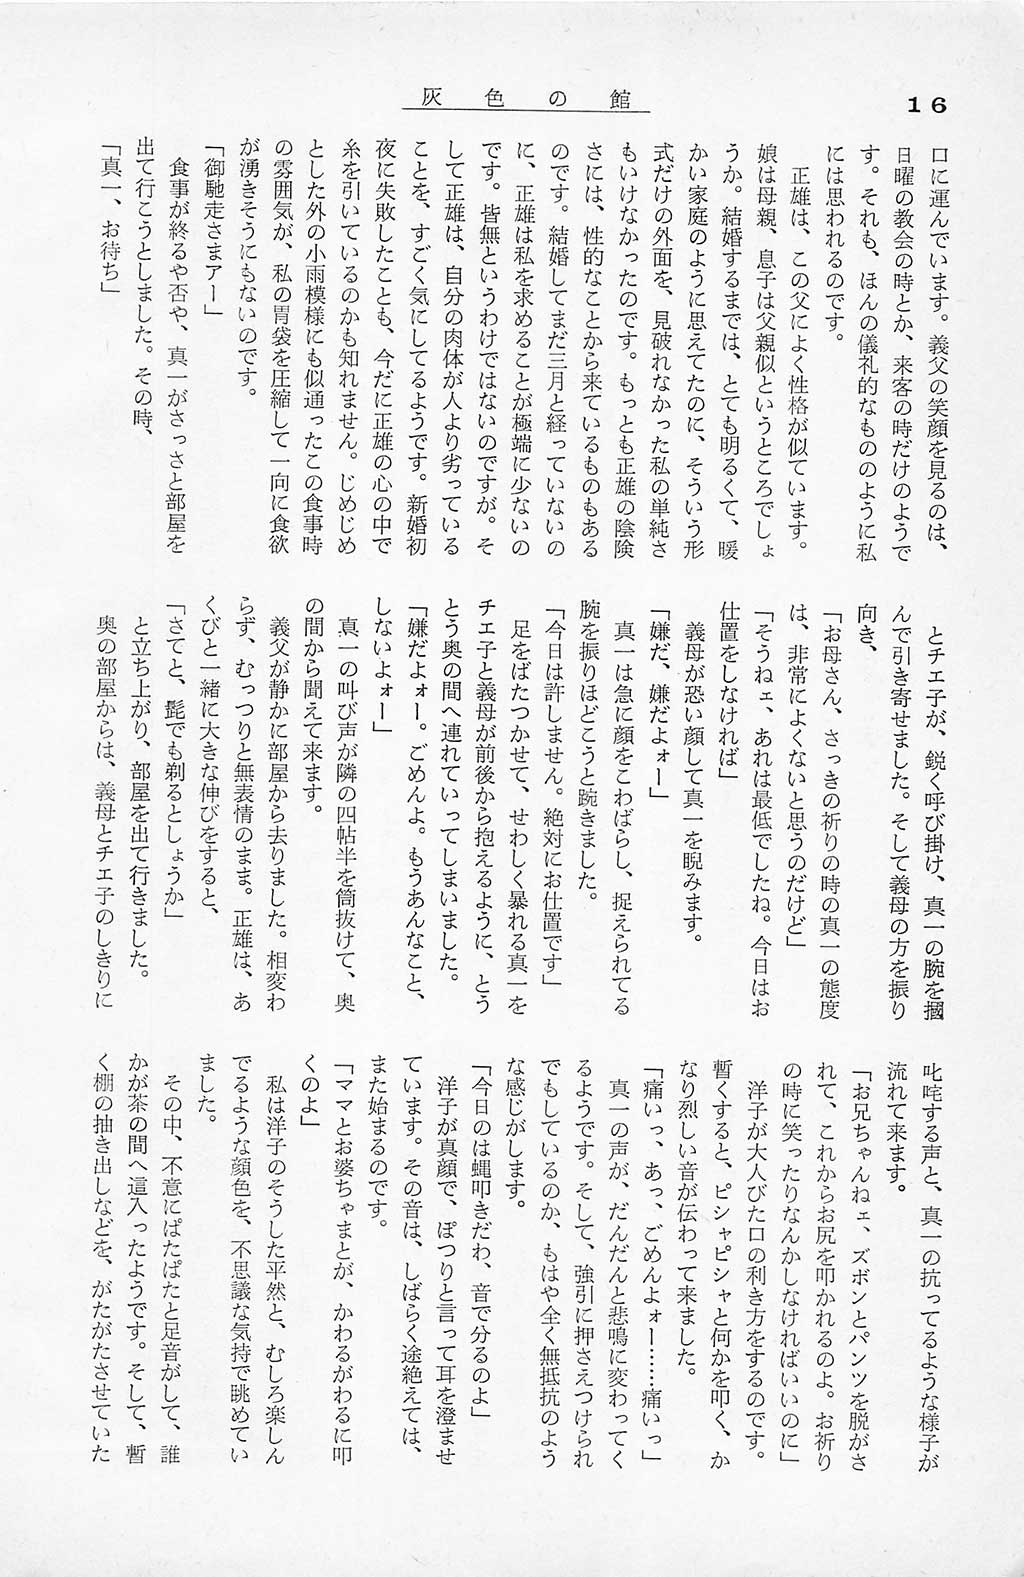 灰色の館
16
口に運んでいます。義父の笑顔を見るのは、
日曜の教会の時とか、来客の時だけのようで
す。それも、ほんの儀礼的なもののように私
には思われるのです。
正雄は、この父によく性格が似ています。
娘は母親、息子は父親似というところでしょ
うか。結婚するまでは、とても明るくて、暖
かい家庭のように思えてたのに、そういう形
式だけの外面を、見破れなかった私の単純さ
もいけなかったのです。もっとも正雄の陰険
さには、性的なことから来ているものもある
のです。結婚してまだ三月と経っていないの
に、正雄は私を求めることが極端に少ないの
です。皆無というわけではないのですが。そ
して正雄は、自分の肉体が人より劣っている
ことを、すごく気にしてるようです。新婚初
夜に失敗したことも、今だに正雄の心の中で
糸を引いているのかも知れません。じめじめ
とした外の小雨模様にも似通ったこの食事時
の雰囲気が、私の胃袋を圧縮して一向に食欲
が湧きそうにもないのです。
「御馳走さまアー」
食事が終るや否や、真一がさっさと部屋を
出て行こうとしました。その時、
「真一、お待ち」
とチエ子が、鋭く呼び掛け、真一の腕を摑
んで引き寄せました。そして義母の方を振り
向き、
「お母さん、さっきの祈りの時の真一の態度
は、非常によくないと思うのだけど」
「そうねェ、あれは最低でしたね。今日はお
仕置をしなければ」
義母が恐い顔して真一を睨みます。
「嫌だ、嫌だよォー」
真一は急に顔をこわばらし、捉えられてる
腕を振りほどこうと踠きました。
「今日は許しません。絶対にお仕置です」
足をばたつかせて、せわしく暴れる真一を
チエ子と義母が前後から抱えるように、とう
とう奥の間へ連れていってしまいました。
「嫌だよォー。ごめんよ。もうあんなこと、
しないよォー」
真一の叫び声が隣の四帖半を筒抜けて、奥
の間から聞えて来ます。
義父が静かに部屋から去りました。相変わ
らず、むっつりと無表情のまま。正雄は、あ
くびと一緒に大きな伸びをすると、
「さてと、髭でも剃るとしょうか」
と立ち上がり、部屋を出て行きました。
奥の部屋からは、義母とチエ子のしきりに
叱咤する声と、真一の抗ってるような様子が
流れて来ます。
「お兄ちゃんねェ、ズボンとパンツを脱がさ
れて、これからお尻を叩かれるのよ。お祈り
の時に笑ったりなんかしなければいいのに」
洋子が大人びた口の利き方をするのです。
暫くすると、ピシャピシャと何かを叩く、か
なり烈しい音が伝わって来ました。
「痛いっ、あっ、ごめんよォー……痛いっ」
真一の声が、だんだんと悲鳴に変わってく
るようです。そして、強引に押さえつけられ
でもしているのか、もはや全く無抵抗のよう
な感じがします。
「今日のは蝿叩きだわ、音で分るのよ」
洋子が真顔で、ぽつりと言って耳を澄ませ
ています。その音は、しばらく途絶えては、
また始まるのです。
「ママとお婆ちゃまとが、かわるがわるに叩
くのよ」
私は洋子のそうした平然と、むしろ楽しん
でるような顔色を、不思議な気持で眺めてい
ました。
その中、不意にぱたぱたと足音がして、誰
かが茶の間へ這入ったようです。そして、暫
く棚の抽き出しなどを、がたがたさせていた